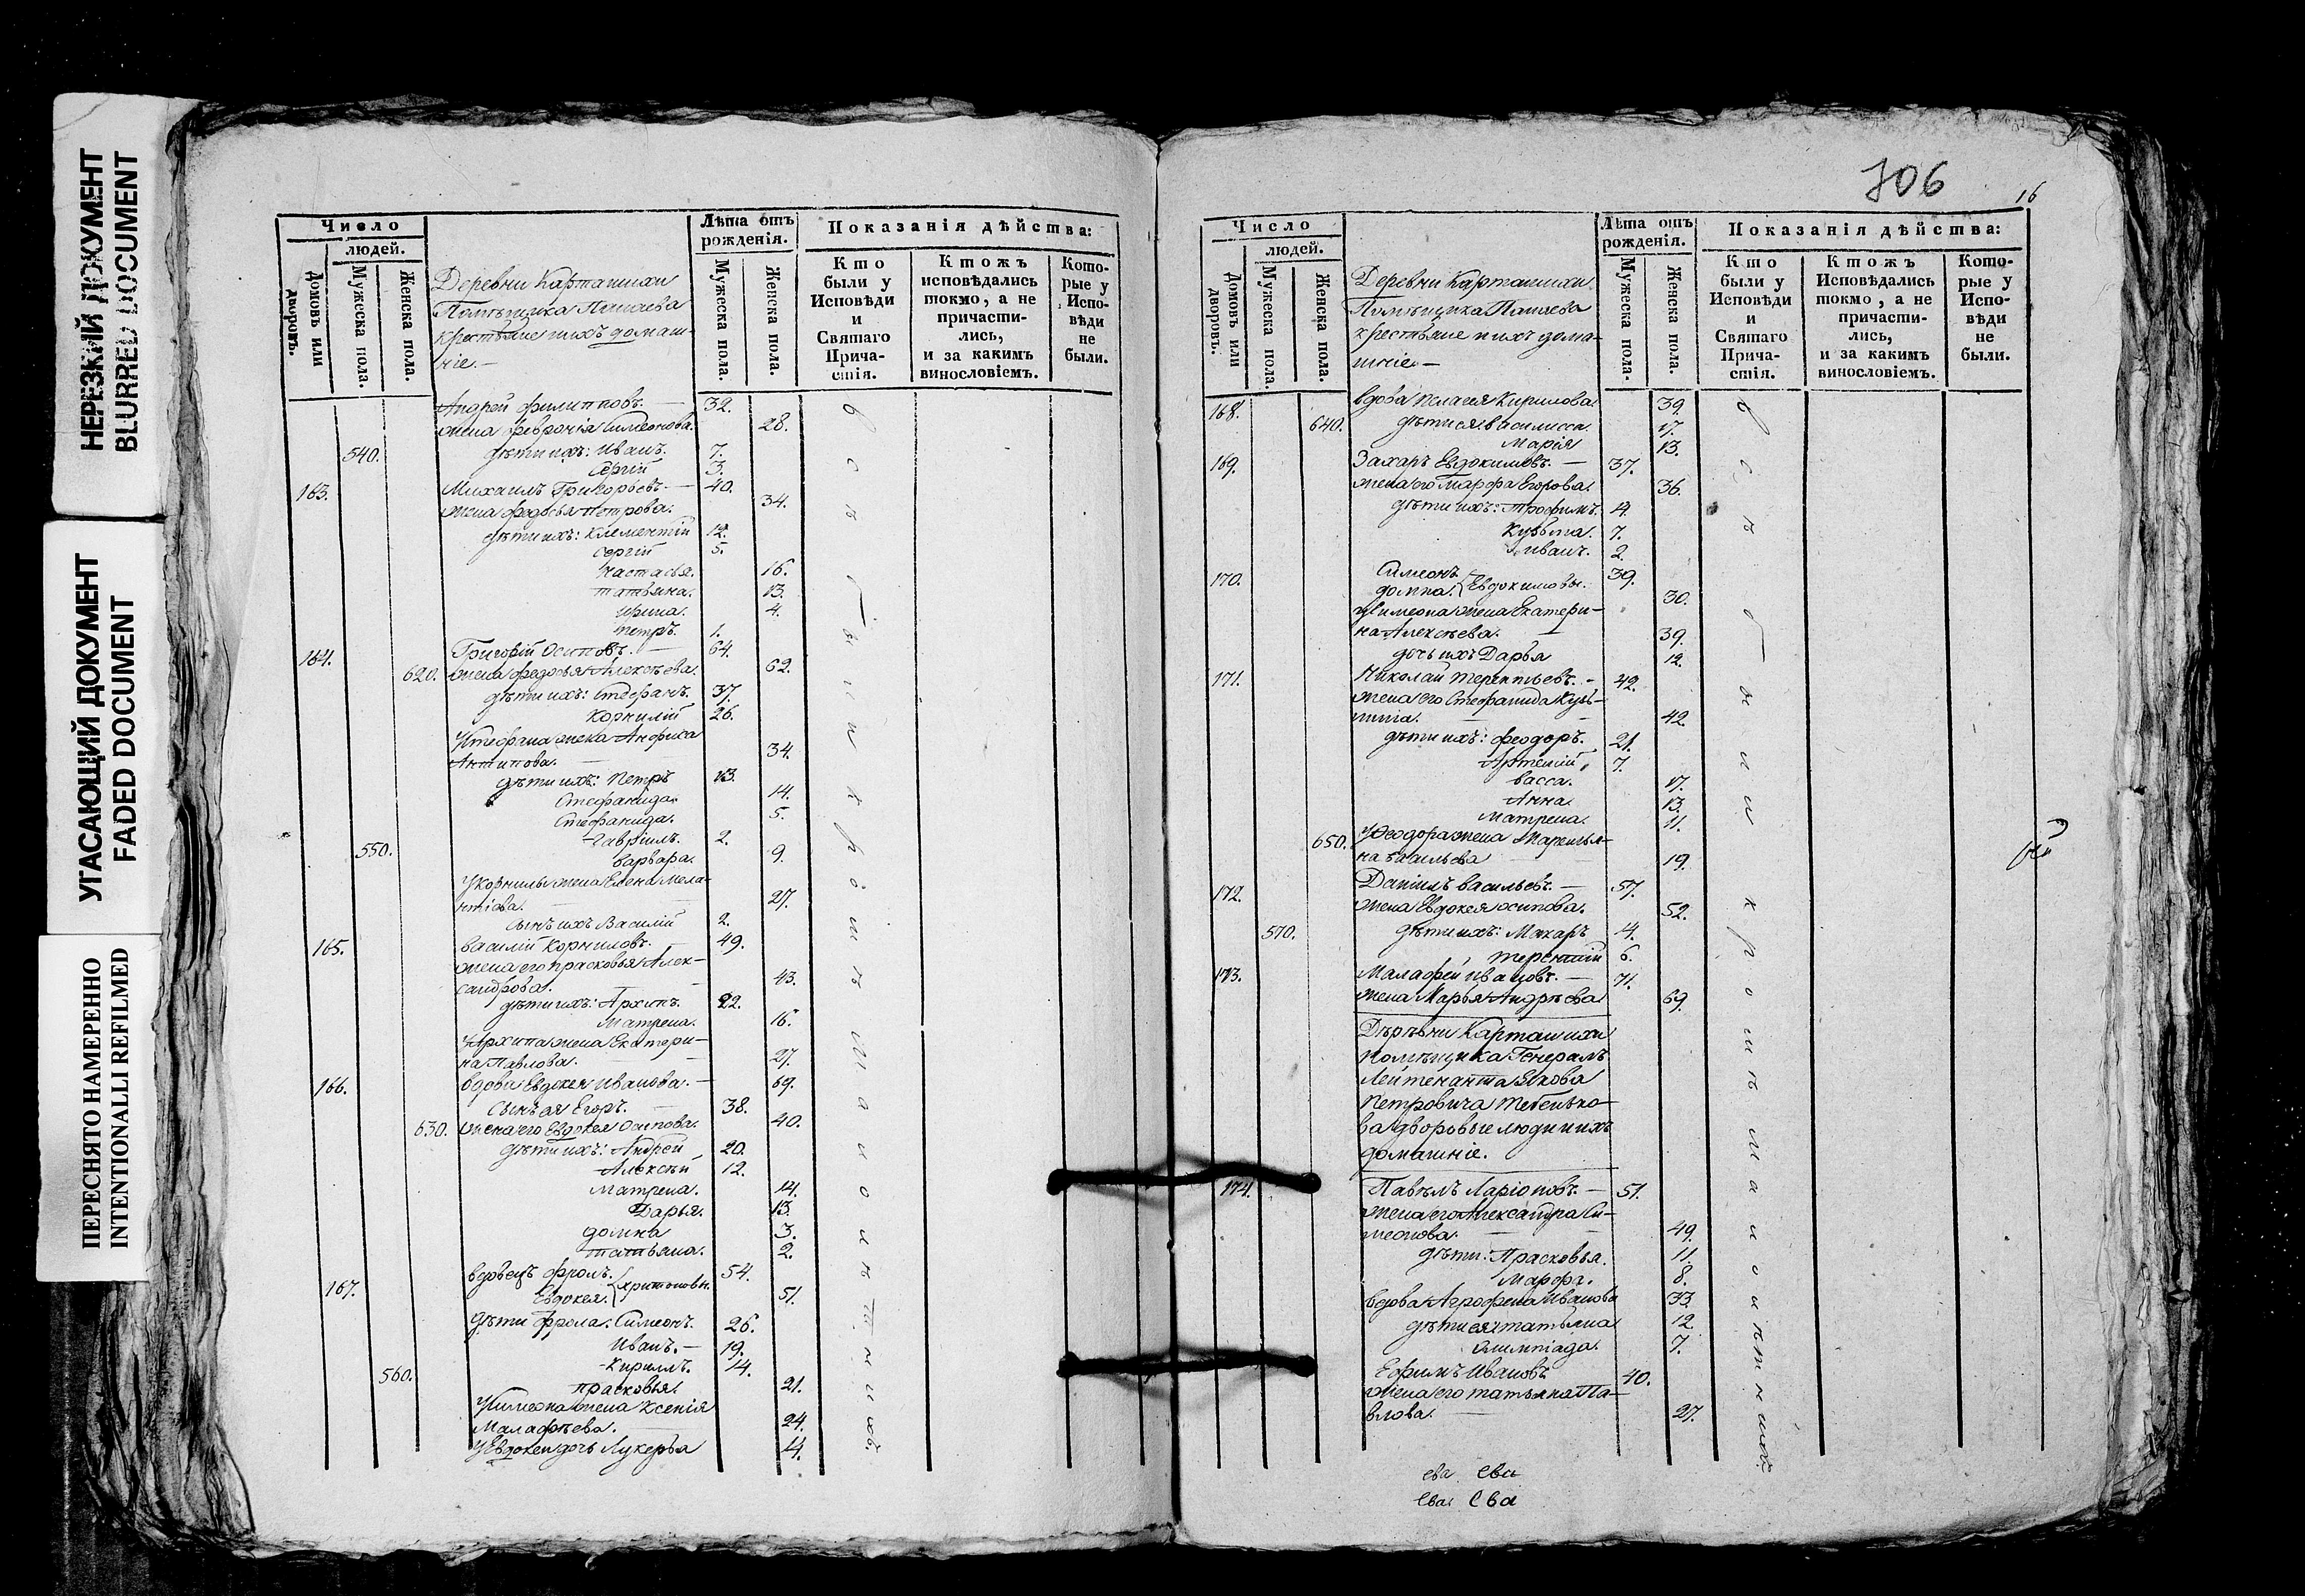 НЕРЕЗКИЙ ДОКУМЕНТ
BLURRED DOCUMENT
УГАСАЮЩИЙ ДОКУМЕНТ
FADED DOCUMENT
ПЕРЕСНЯТО НАМЕРЕННО
INTENTIONALLI REFILMED
Число
людей.
Домовъ или дворовъ.
Мужеска пола.
Женска пола.
Деревни Карташихи
Помѣщика
крестьяне и ихъ домаш-
ніе.-
Лѣта отъ рожденія.
Мужеска пола.
Женска пола.
Показанія дѣйства:
Кто были у Исповѣди и Святаго Прича-стія.
Ктожъ исповѣдались токмо, а не причасти-лись, и за какимъ винословіемъ.
Кото-рые у Испо-вѣди не были.
Андрей Филипповъ. 32.
жена Февронія Симеонова. 28.
540. дѣти ихъ: Иванъ. 7.
Сергій 3.
163. Михаилъ Григорьевъ.- 40.
жена Федосья Петрова. 34.
дѣти ихъ: Климентій 12.
Сергій 5.
Настасья. 16.
татьяна. 13.
Ирина. 4.
Петръ. 1.
164. Григорій Осиповъ. - 64.
620. жена Федосья Алексѣева. 62.
дѣти ихъ: Стефанъ. 37.
Корнилій 26.
У Стефана жена Анфиса
Антипова. 34.
дѣти ихъ: Петръ 13.
Стефанида. 14.
Стефанида. 5.
Гавріилъ. 2.
550. варвара. 9.
У Корнилы жена Елена Мела-
нтіева. 27.
сынъ ихъ Василій 2.
165. василій Корниловъ. 49.
жена его прасковья Алек-
сандрова. 43.
дѣти ихъ: Архипъ. 22.
Матрена. 16.
У Архипа жена Екатери-
на Павлова. 27.
166. вдова Евдокея Иванова. - 69.
сынъ ея Егоръ. 38.
630. жена его Евдокея Осипова. 40.
дѣти ихъ: Андрей 20.
Алексѣй 12.
Матрена. 14.
Дарья. 13.
домна 3.
татьяна. 2.
167. вдовецъ Фролъ. 54.
Евдокея. Харитоновы. 51.
дѣти Фрола: Симеонъ. 26.
Иванъ.- 19.
Кириллъ. 14.
560. прасковья. 21.
У Симеона жена Ксенія
Малафѣева. 24.
У Евдокеи дочь Лукерья 4.
706
16
Число
людей.
Домовъ или дворовъ.
Мужеска пола.
Женска пола.
Деревни Карташихи
Помѣщика
крестьяне и ихъ дома-
шніе.-
Лѣта отъ рожденія.
Мужеска пола.
Женска пола.
Показанія дѣйства:
Кто были у Исповѣди и Святаго Прича-стія.
Ктожъ Исповѣдались токмо, а не причасти-лись, и за какимъ винословіемъ.
Кото-рые у Испо-вѣди не были.
168. вдова Пелагея Кирилова. 39.
640. дѣти ея: василисса. 17.
Марія 13.
169. Захаръ Евдокимовъ. - 37.
жена его Марфа Егорова. 36.
дѣти ихъ: трофимъ. 14.
Кузьма. 7.
иванъ. 2.
170. Симеонъ 39.
домна. Евдокимовы. 30.
У Симеона жена Екатери-
на Алексѣева. 39.
дочь ихъ Дарья 12.
171. Николай терентьевъ. - 42.
жена его Стефанида Кузь-
мина. 42.
дѣти ихъ: феодоръ. 21.
Артемій 7.
васса. 17.
Анна. 13.
Матрена. 11.
650. У Феодора жена Маркелья-
на васильева 19.
172. Даніилъ васильевъ. - 57.
жена Евдокея осипова. 52.
570. дѣти ихъ: Макаръ 14.
терентій 6.
173. Малафей ивановъ. - 71.
жена Марья Андрѣева 69.
Дѣрѣвни Карташихи
помѣщика Генералъ
Лейтенанта Якова
Петровича
ва дворовые люди и ихъ
домашніе.
174. Павелъ Ларіоновъ. - 51.
жена его Александра Си-
меонова. 49.
дѣти: Прасковья. 11.
Марфа. 8.
вдова Агрофена Иванова 33.
дѣти ея: татьяна 12.
Олимпіада. 7.
Ефимъ Ивановъ 40.
жена его татьяна Па-
влова. 27.
ева ева
ева ева